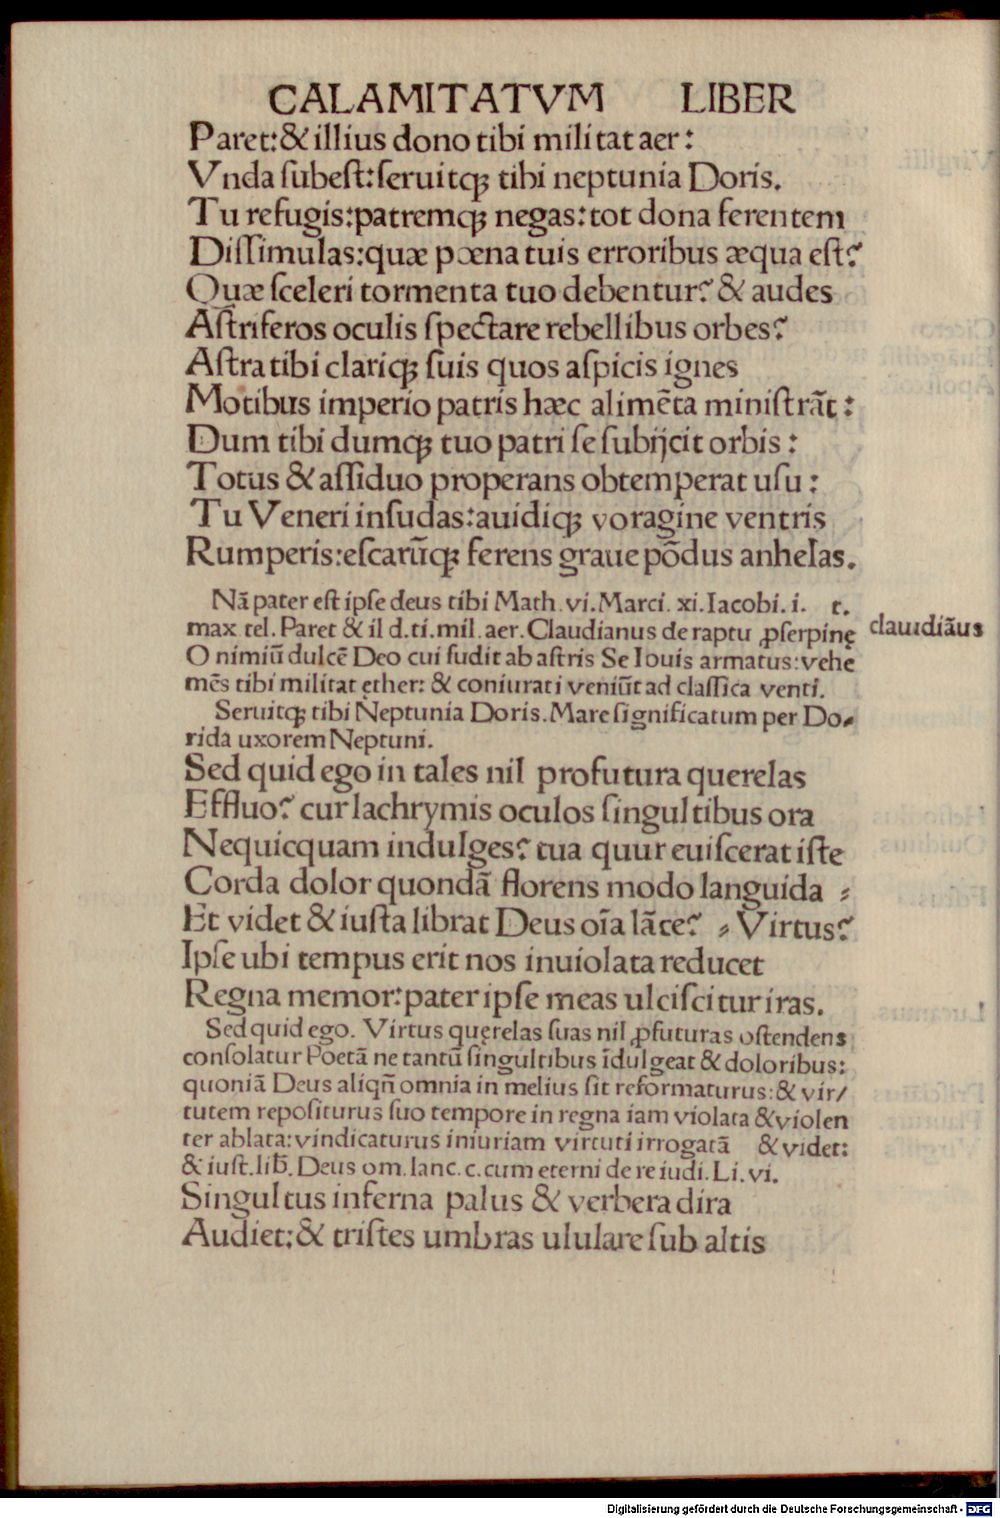 CALAMITATVM LIBER
Paret:& illius dono tibi militat aer:
Vnda subest:seruitꝗ tibi neptunia Doris.
Tu refugis:patremꝗ negas:tot dona ferentem
Dissimulas:quæ pœna tuis erroribus æqua est?
Quæ sceleri tormenta tuo debentur? & audes
Astriferos oculis spectare rebellibus orbes?
Astra tibi clariꝗ suis quos aspicis ignes
Motibus imperio patris hæc alimẽta ministrãt:
Dum tibi dumꝗ tuo patri se subijcit orbis:
Totus & assiduo properans obtemperat usu:
Tu Veneri insudas:auidiꝗ voragine ventris
Rumperis:escarũꝗ ferens graue põdus anhelas.
Nã pater est ipse deus tibi Math.vi.Marci. xi.Iacobi.i. t.
max tel. Paret & il d.ti.mil.aer.Claudianus de raptu ꝓserpinę
claudiãus
O nimiũ dulcẽ Deo cui fudit ab astris Se Iouis armatus:vehe
mẽs tibi militat ęther: & coniurati veniũt ad classica venti.
Seruitꝗ tibi Neptunia Doris.Mare significatum per Do⸗
rida uxorem Neptuni.
Sed quid ego in tales nil profutura querelas
Effluo? cur lachrymis oculos singultibus ora
Nequicquam indulges? tua quur euiscerat iste
Corda dolor quondã florens modo languida ⸗
Et videt & iusta librat Deus oĩa lãce? ⸗ Virtus?
Ipse ubi tempus erit nos inuiolata reducet
Regna memor:pater ipse meas ulciscitur iras.
Sed quid ego. Virtus quęrelas suas nil ꝓfuturas ostendens
consolatur Poetã ne tantũ singultibus ĩdulgeat & doloribus:
quoniã Deus aliqñ omnia in melius sit reformaturus:& vir/
tutem repositurus suo tempore in regna iam violata & violen
ter ablata:vindicaturus iniuriam virtuti irrogatã & videt:
& iust.lib̃. Deus om.lanc.c.cum eterni de re iudi.Li.vi.
Singultus inferna palus & verbera dira
Audiet:& tristes umbras ululare sub altis
Digitalisierung gefördert durch die Deutsche Forschungsgemeinschaft - DFG